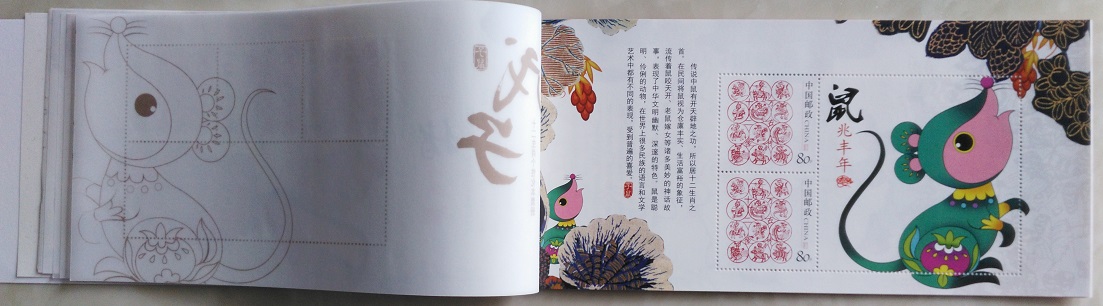 戊子
传说中鼠有开天辟地之功，所以居十二生肖之
首。在民间将鼠视为仓廪丰实、生活富裕的象征，
流传着鼠咬天开、老鼠嫁女等诸多美妙的神话故
事。表现了中华文明幽默、深邃的特色。鼠是聪
明、伶俐的动物，在世界上很多民族的语言和文学
艺术中都有不同的表现，受到普遍的喜爱。
中国邮政 CHINA
80
中国邮政 CHINA
80
鼠
兆丰年